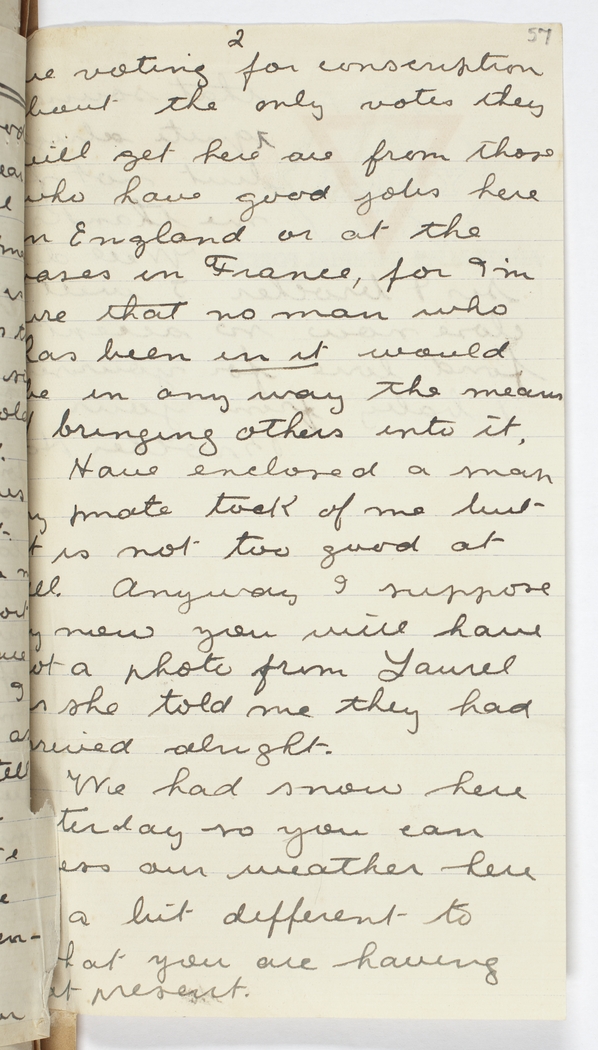 2
57
ve voting for conscription
bout the only votes they
will get here are from those
who have good jobs here
n England or at the
bases in France, for I'm
ure that no man who
has been in it would
be in any way the means
bringing others into it,
Have enclosed a snap
y mate tock of me but
t is not too good at
ll. Anyway I suppose
y now you will have
ot a photo from Laurel
s she told me they had
rrived alright.
We had snow here
terday so you can
ess our weather here
a bit different to
hat you are having
at present.